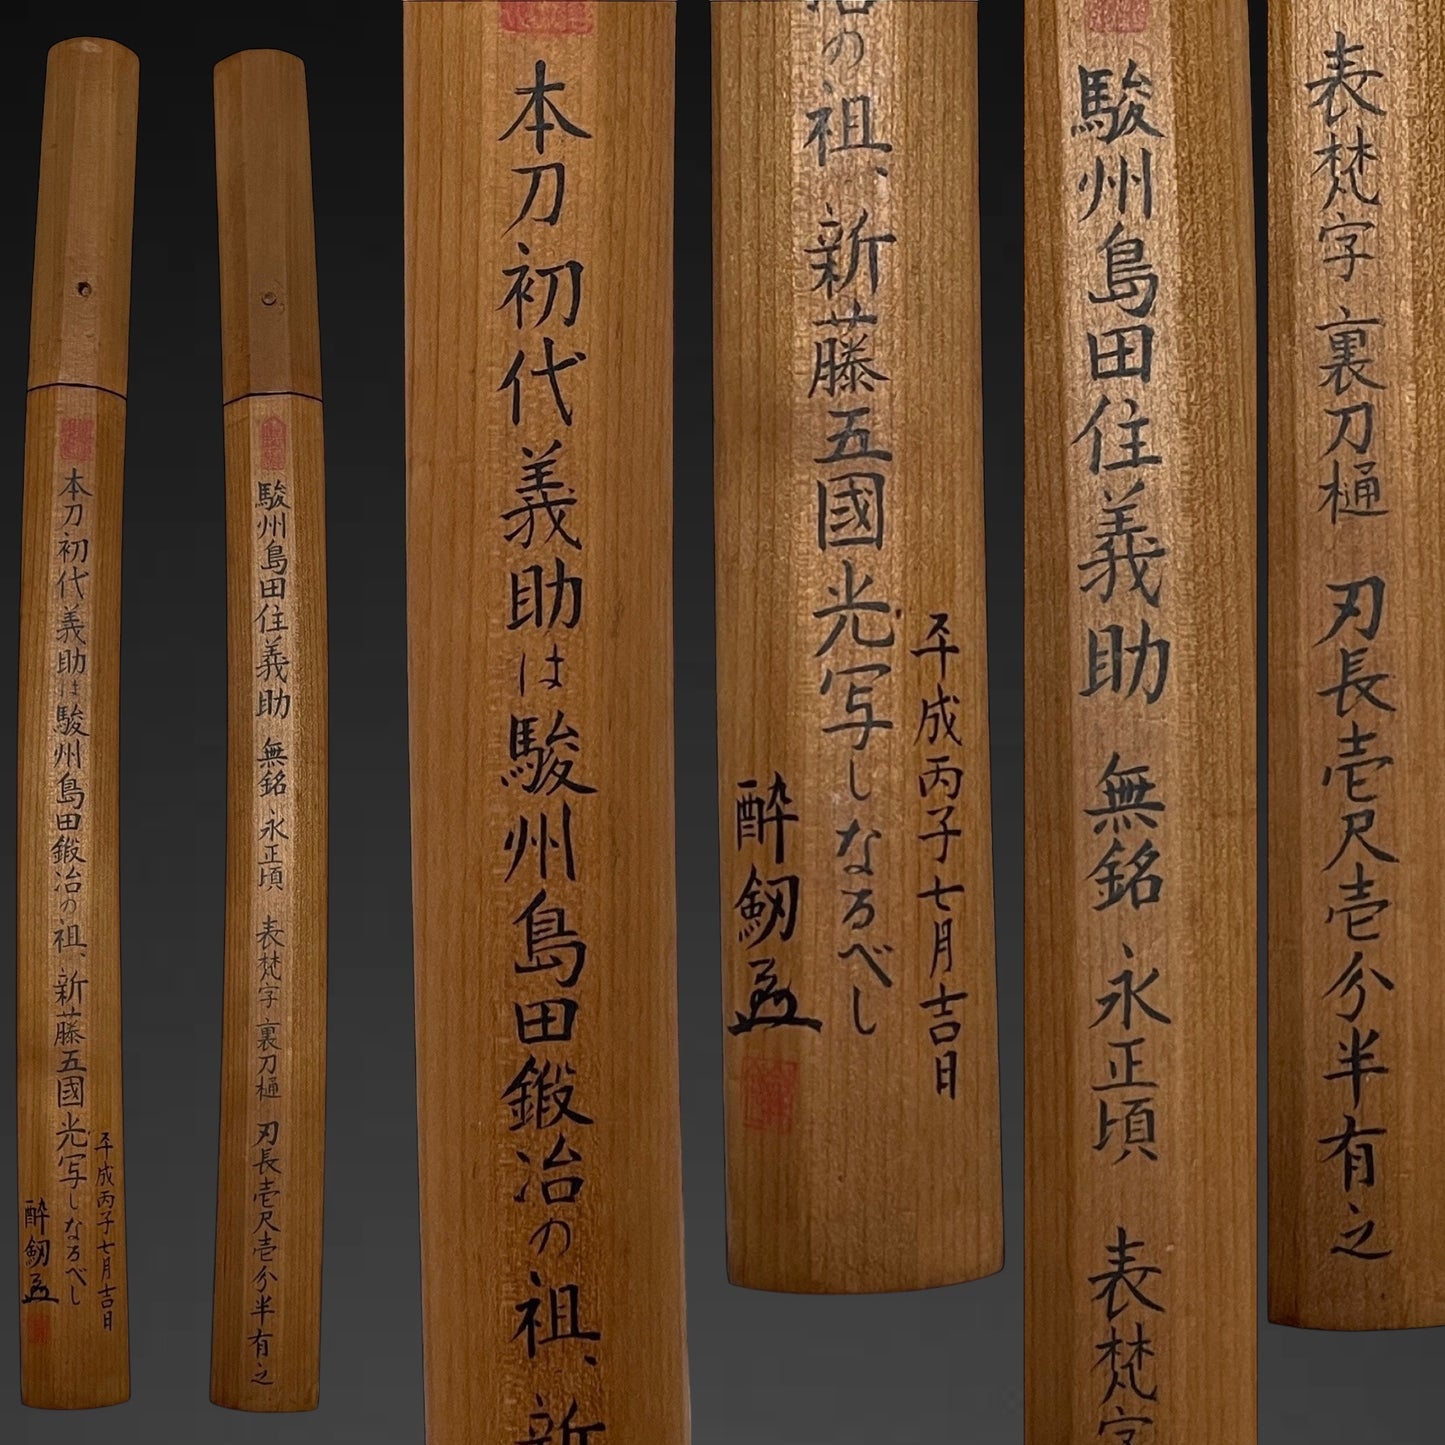 本刀初代義助は駿州島田鍛冶の祖、新藤五國光写しなるべし
平成丙子七月吉日
酔剱
駿州島田住義助 無銘 永正頃 表梵字 裏刀樋 刃長壱尺壱分半有之
本刀初代義助は駿州島田鍛冶の祖、新
冶の祖、新藤五國光写しなるべし
平成丙子七月吉日
酔剱
駿州島田住義助 無銘 永正頃 表梵字
表梵字 裏刀樋 刃長壱尺壱分半有之